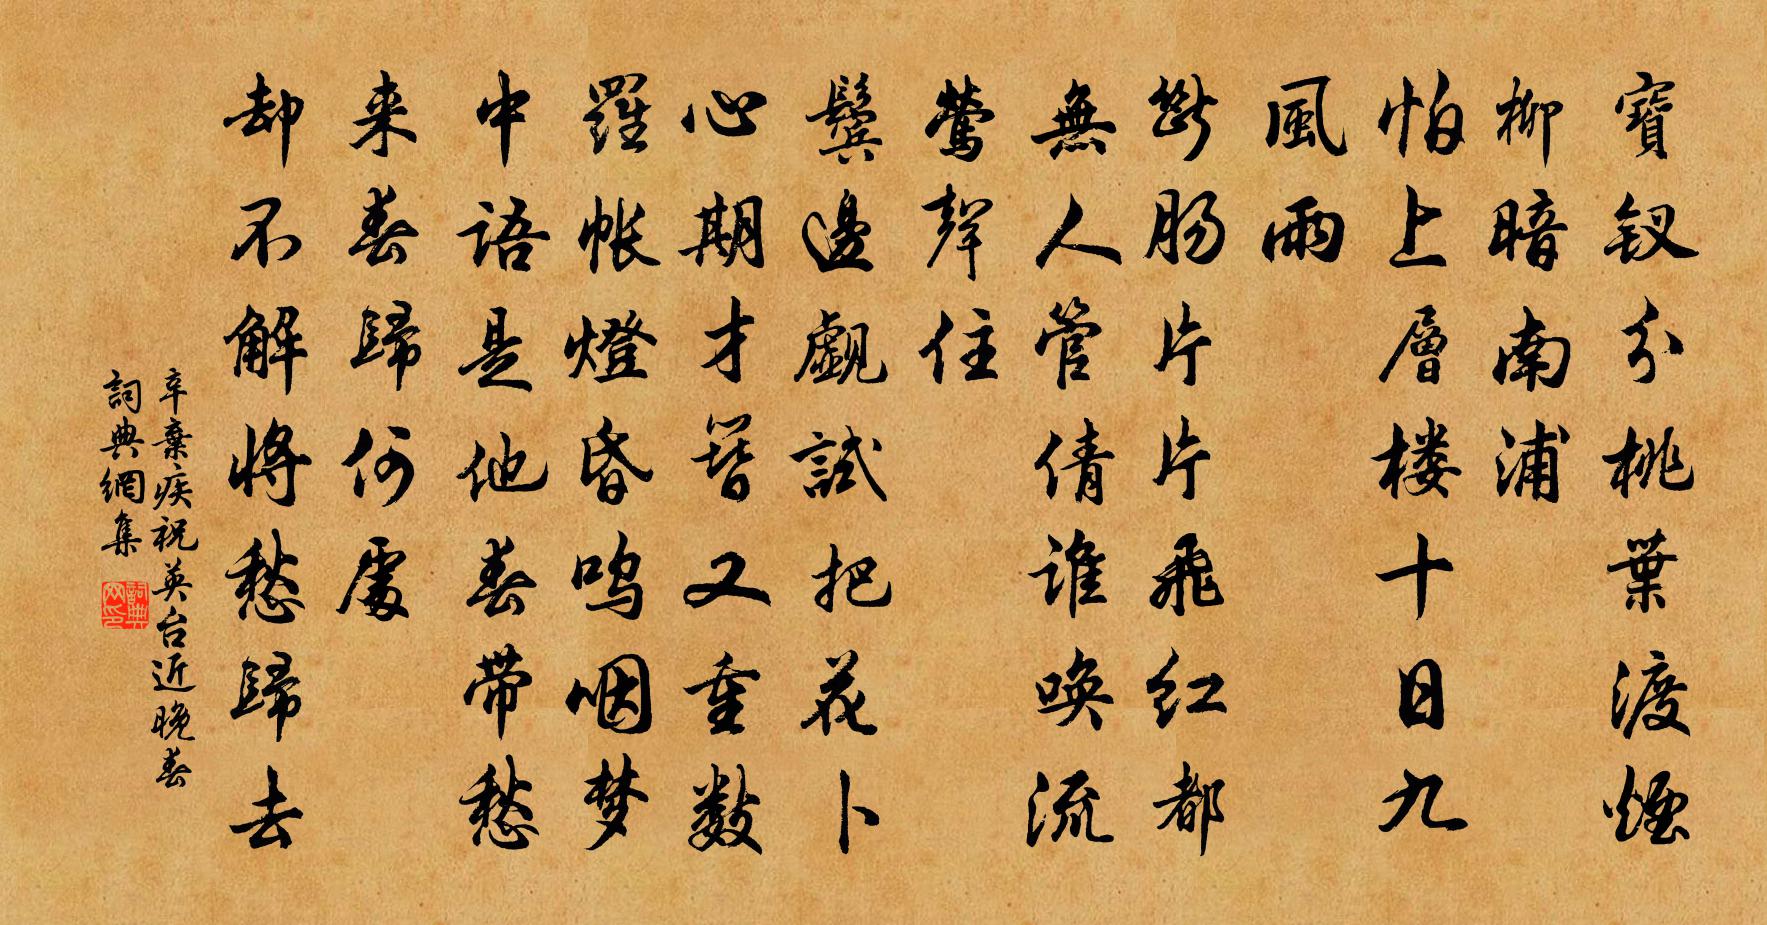 寶釵分桃葉渡煙
柳暗南浦
怕上層楼十日九
風雨
斷肠片片飛红都
無人管倩誰唤流
鶯聲住
鬓邊覷試把花卜
心期才簪又重數
羅帐燈昏呜咽梦
中語是他春带愁
来春歸何處
却不解将愁歸去
辛棄疾祝英台近晚春
詞典網集
詞典网印